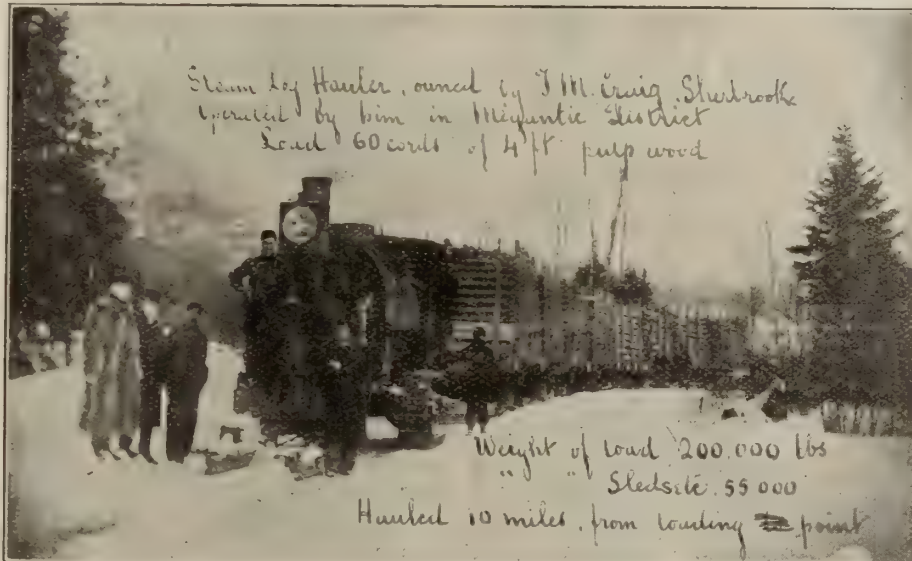 Steam Log Hauler, owned by J M. Craig, Sherbrooke
Operated by him in Megantic District
Load 60 cords of 4 ft pulp wood
Weight of load 200.000 lbs
" " Sledsetc. 55 000
Hauled 10 miles, from loading point